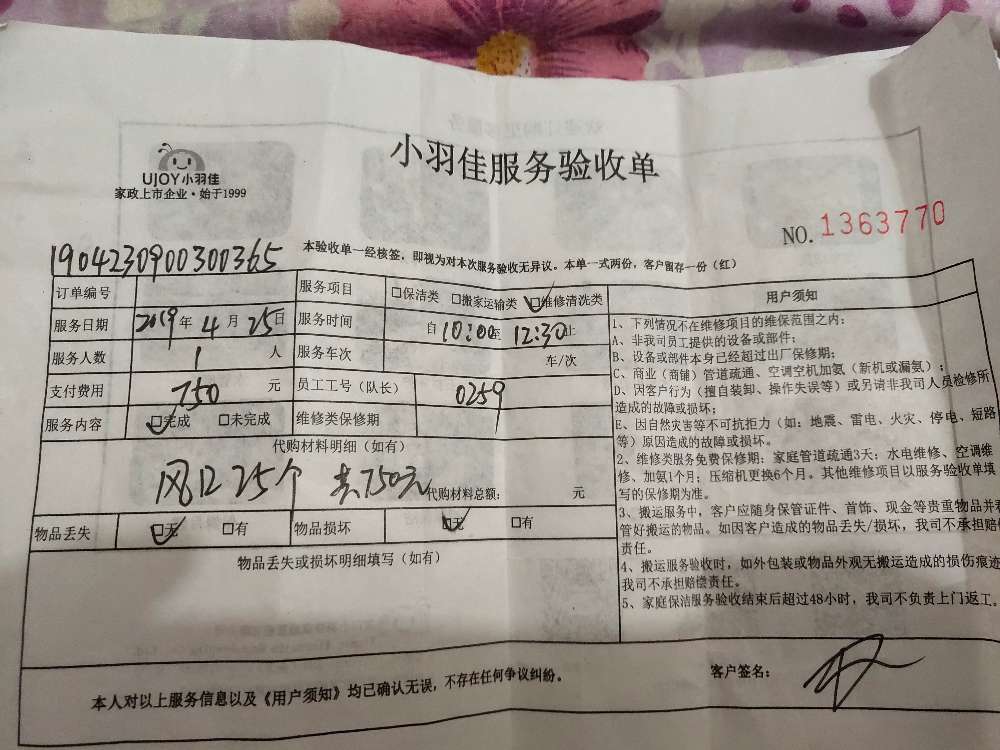 UJOY小羽佳
家政上市企业·始于1999
小羽佳服务验收单
NO. 1363770
1904230900300365
本验收单一经核签，即视为对本次服务验收无异议。本单一式两份，客户留存一份（红）
订单编号 服务项目 □保洁类 □搬家运输类 □维修清洗类
服务日期 2019年4月25日 服务时间 自10:00至12:30止
服务人数 1 人 服务车次 车/次
支付费用 750 元 员工工号（队长） 0259
服务内容 □完成 □未完成 维修类保修期
代购材料明细（如有）
风口25个 共750元 代购材料总额： 元
物品丢失 □无 □有 物品损坏 □无 □有
物品丢失或损坏明细填写（如有）
用户须知
1、下列情况不在维修项目的维保范围之内：
A、非我司员工提供的设备或部件；
B、设备或部件本身已经超过出厂保修期；
C、商业（商铺）管道疏通、空调空机加氨（新机或漏氨）；
D、因客户行为（擅自装卸、操作失误等）或另请非我司人员检修所
造成的故障或损坏；
E、因自然灾害等不可抗拒力（如：地震、雷电、火灾、停电、短路
等）原因造成的故障或损坏。
2、维修类服务免费保修期：家庭管道疏通3天；水电维修、空调维
修、加氨1个月；压缩机更换6个月。其他维修项目以服务验收单填
写的保修期为准。
3、搬运服务中，客户应随身保管证件、首饰、现金等贵重物品并看
管好搬运的物品。如因客户造成的物品丢失/损坏，我司不承担赔偿
责任。
4、搬运服务验收时，如外包装或物品外观无搬运造成的损伤痕迹
我司不承担赔偿责任。
5、家庭保洁服务验收结束后超过48小时，我司不负责上门返工。
本人对以上服务信息以及《用户须知》均已确认无误，不存在任何争议纠纷。
客户签名：